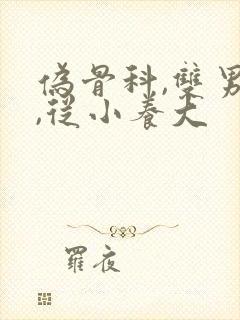 偽骨科,雙男
,從小養大
羅夜